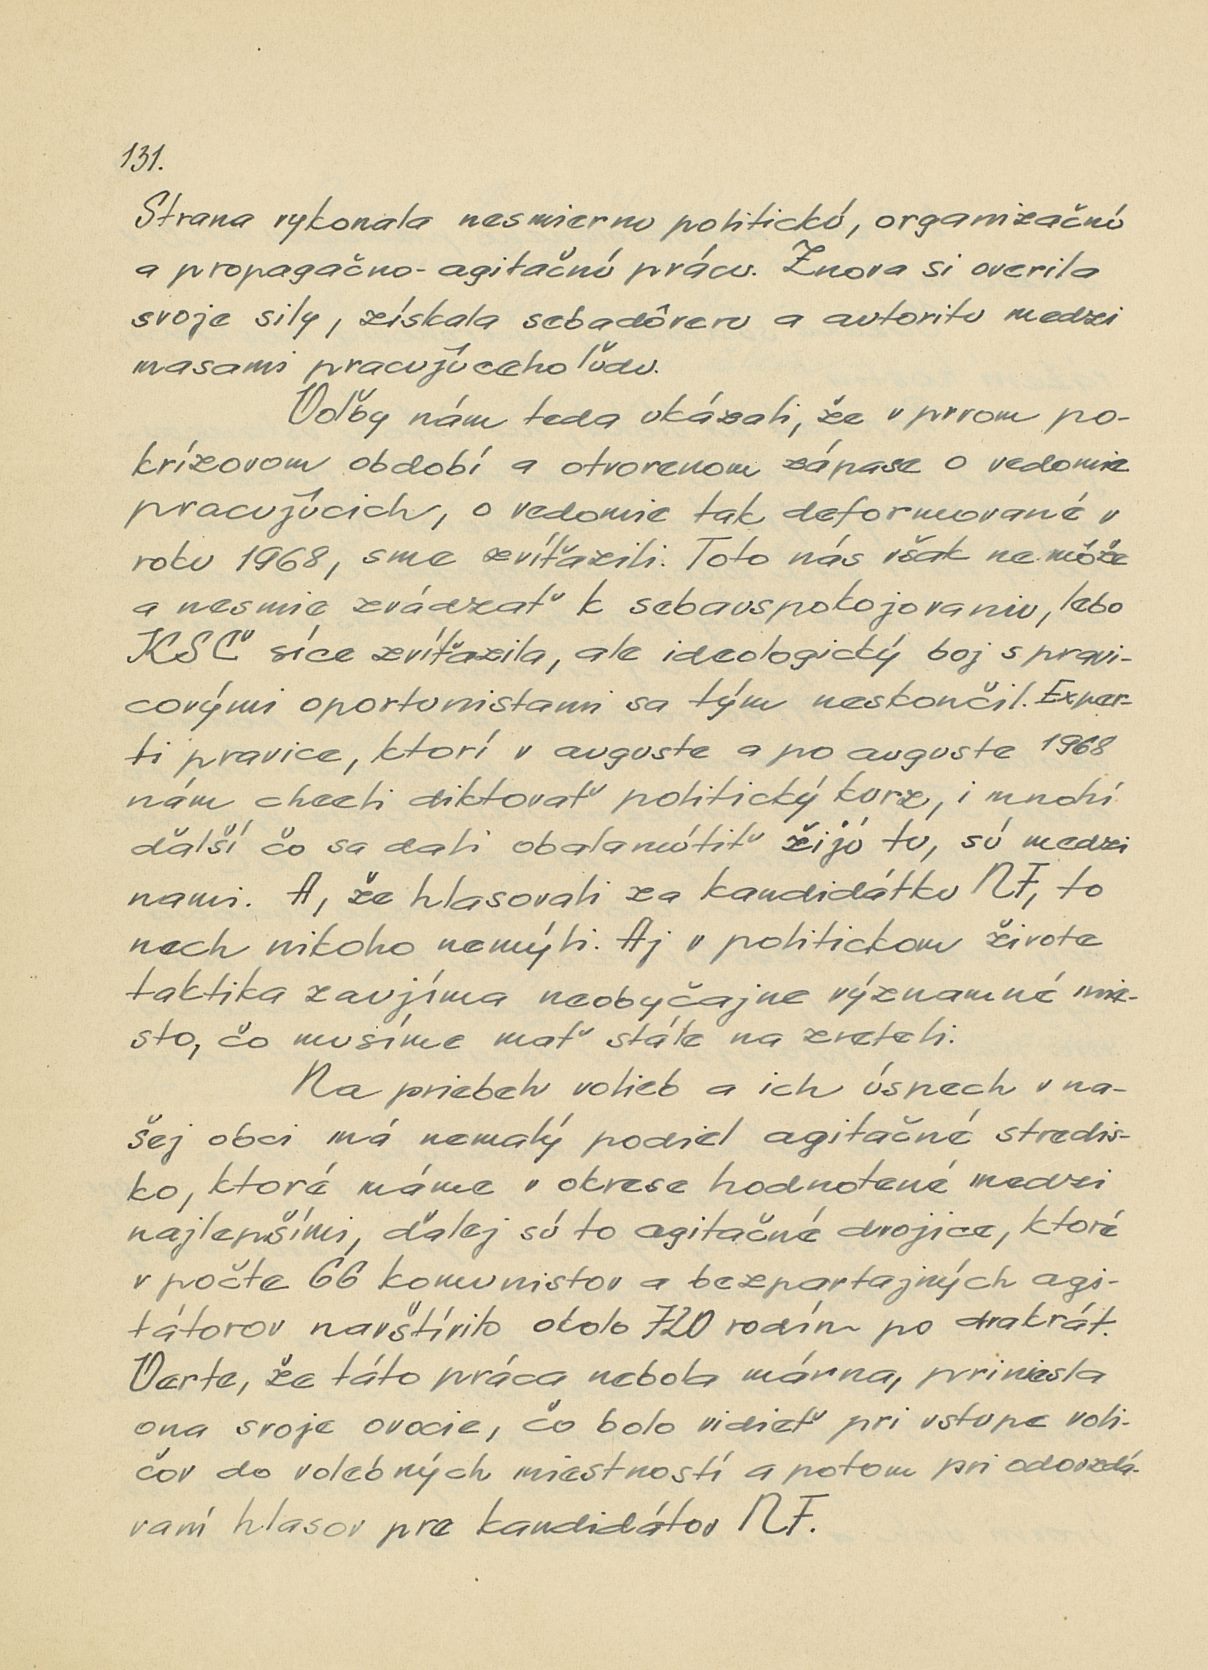 131.
Strana vykonala nesmiernu politickú, organizačnú
a propagačno-agitačnú prácu. Znova si overila
svoje sily, získala sebadôveru a autoritu medzi
masami pracujúceho ľudu.
Voľby nám teda ukázali, že v prvom po-
krízovom období a otvorenom zápase o vedomie
pracujúcich, o vedomie tak deformované v
roku 1968, sme zvíťazili. Toto nás však nemôže
a nesmie zvádzať k sebauspokojovaniu, lebo
KSČ síce zvíťazila, ale ideologický boj s pravi-
covými oportunistami sa tým neskončil. Exper-
ti pravice, ktorí v auguste a po auguste 1968
nám chceli diktovať politický kurz, i mnohí
ďalší čo sa dali obalamútiť žijú tu, sú medzi
nami. A, že hlasovali za kandidátku NF, to
nech nikoho nemýli. Aj v politickom živote
taktika zaujíma neobyčajne významné mie-
sto, čo musíme mať stále na zreteli.
Na priebeh volieb a ich úspech v na-
šej obci má nemalý podiel agitačné stredis-
ko, ktoré máme v okrese hodnotené medzi
najlepšími, ďalej sú to agitačné dvojice, ktoré
v počte 66 komunistov a bezpartajných agi-
tátorov navštívilo okolo 720 rodín po dvakrát.
Verte, že táto práca nebola márna, priniesla
ona svoje ovocie, čo bolo vidieť pri vstupe voli-
čov do volebných miestností a potom pri odovzdá-
vaní hlasov pre kandidátov NF.